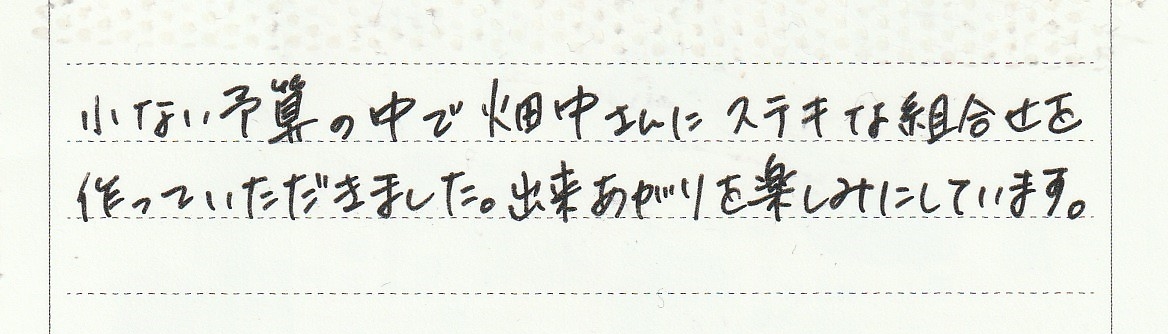 小ない予算の中で畑中さんにステキな組合せを
作っていただきました。出来あがりを楽しみにしています。